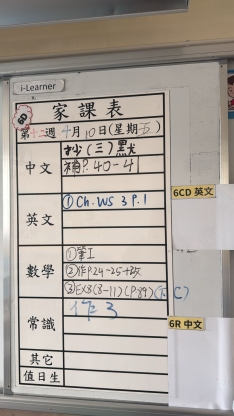 i-Learner
6D
家課表
第十二週 十月10日(星期五)
中文 抄(三)默
補P.40-41
英文 ①Ch. WS 3 P.1
數學 ①筆工
②作P.24-25+改
③EX8(8-11)(P.89)(C)
常識 作3
其它
值日生
6CD 英文
6R 中文